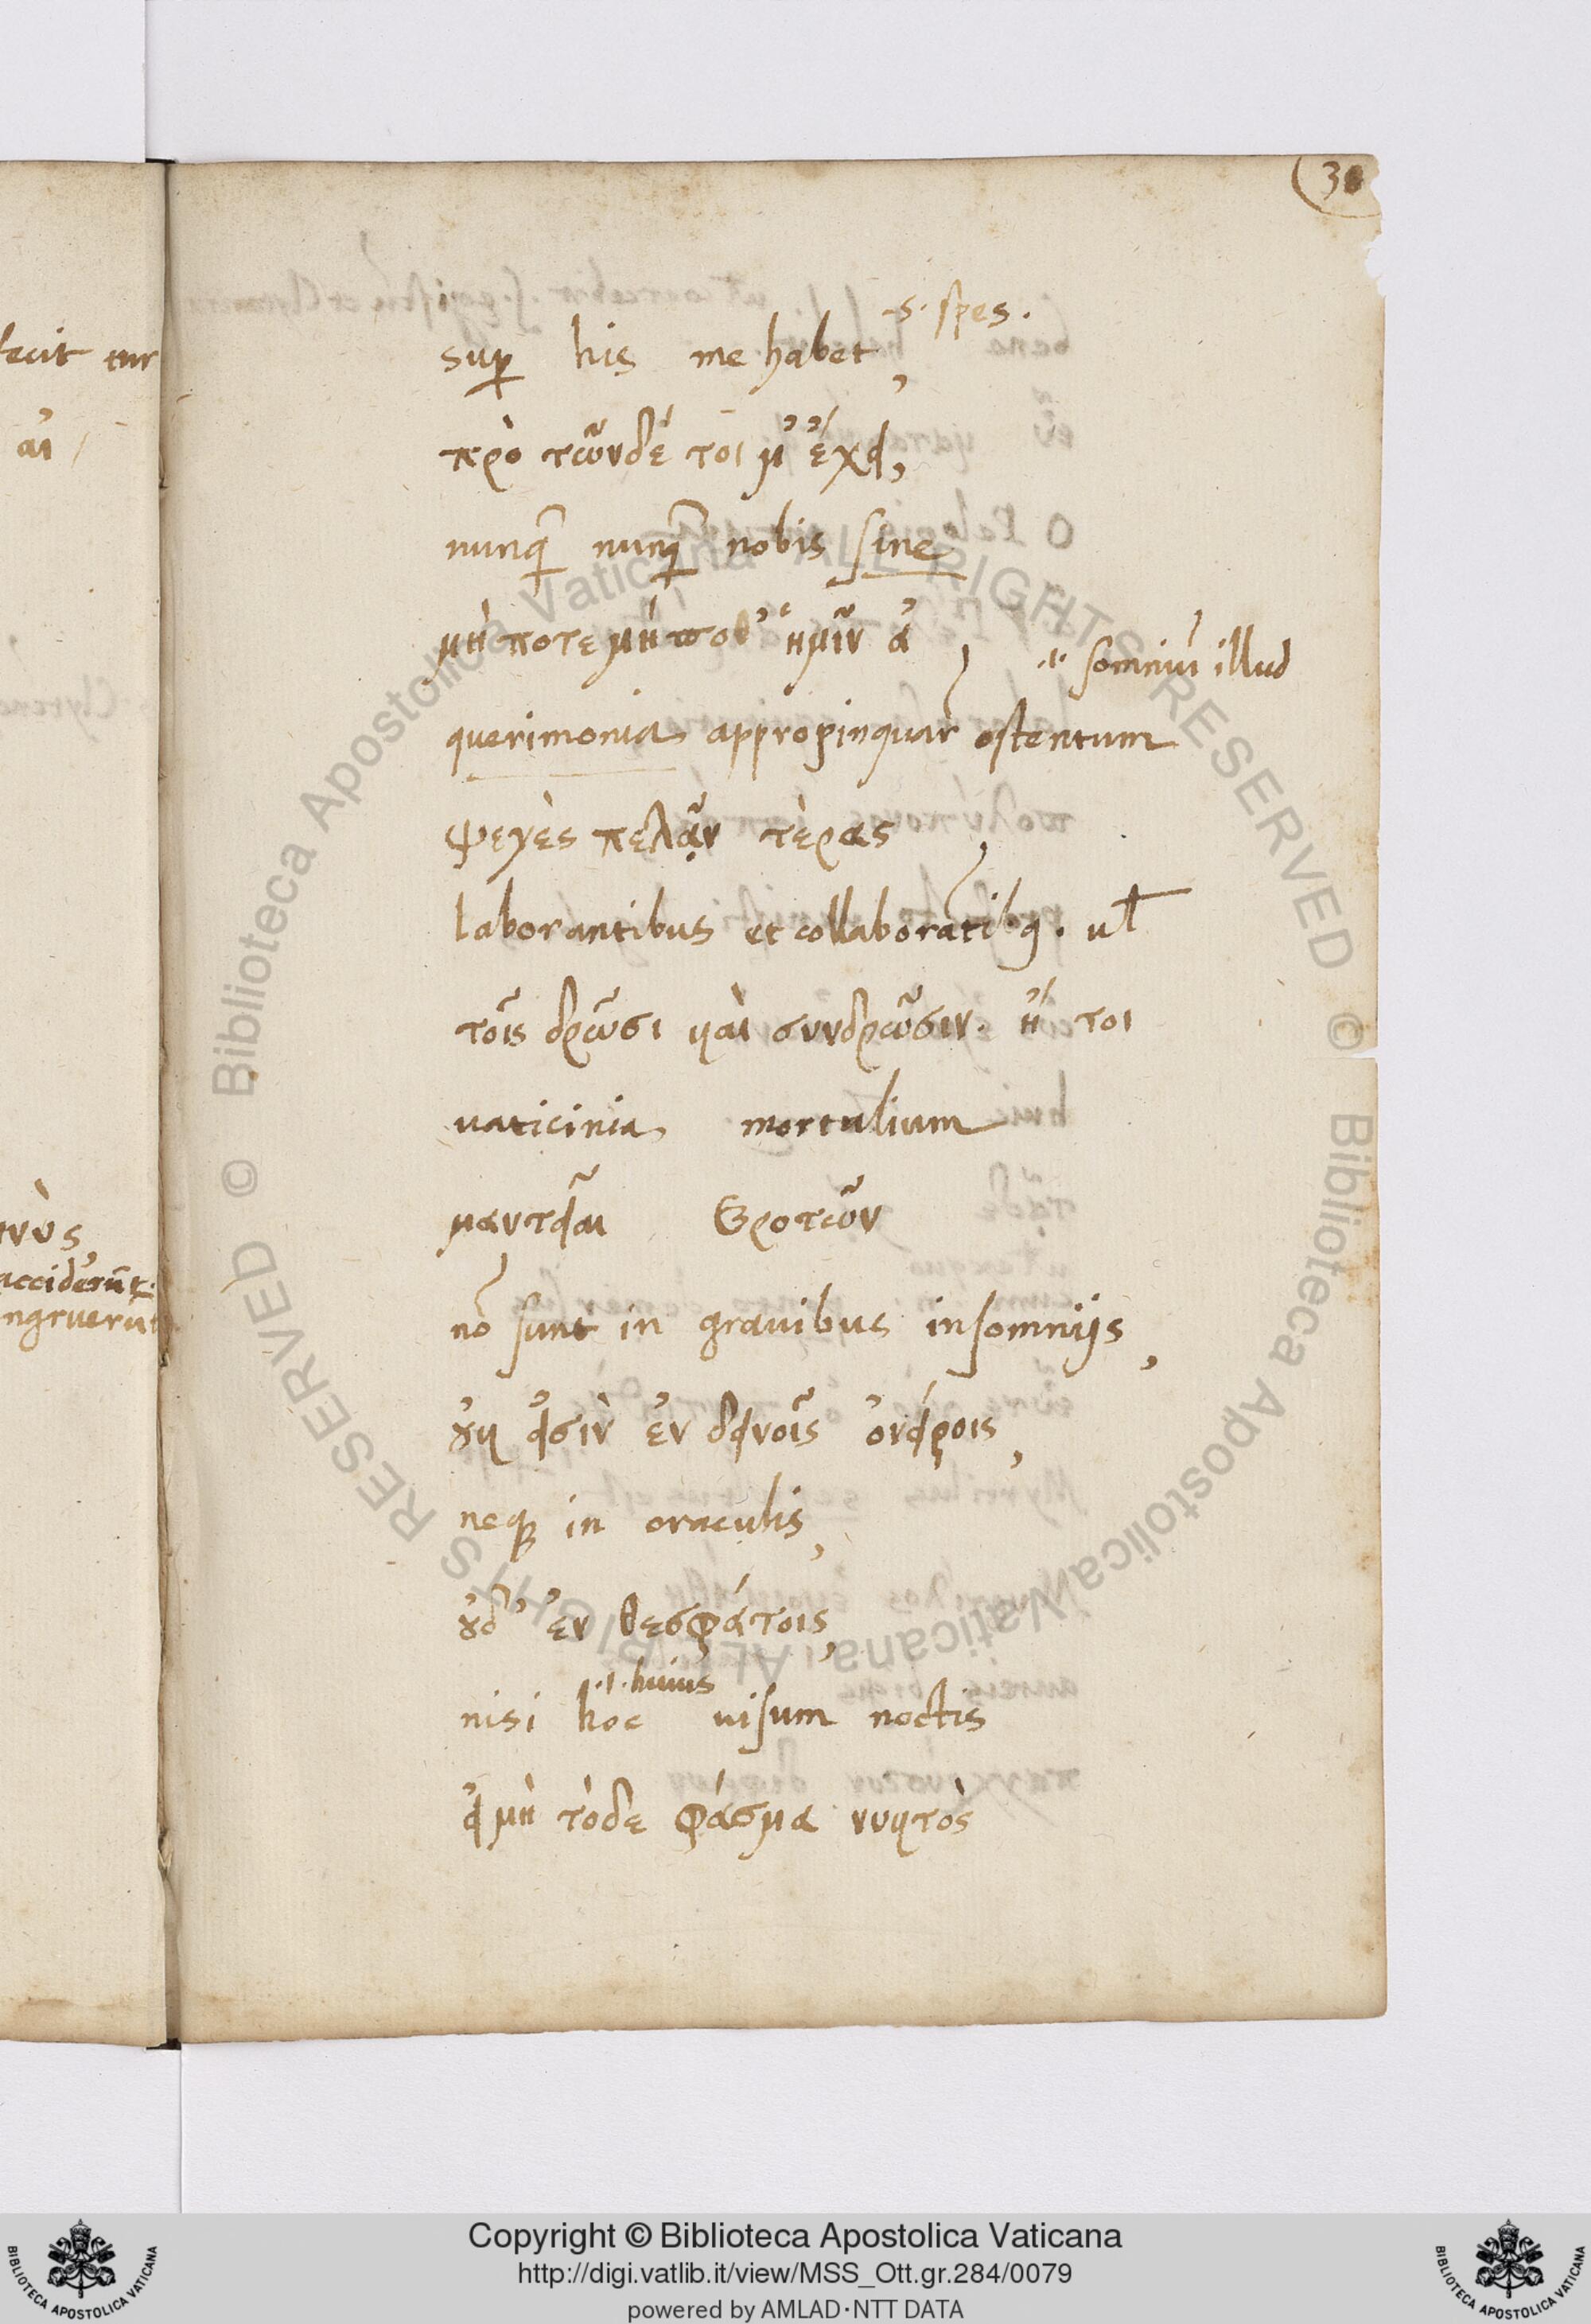 30
.s. spes.
sup his me habet,
πρὸ τῶνδέ τοι μ' ἔχει,
nunq̃ nunq̃ nobis sine
μὴ ποτε μὴ ποθ' ἡμῖν ἀ
.i. somniũ illud
querimonia appropinquar ostentum
ψεγὲς πελᾷν τέρας
laborantibus et collaborãtibq. ul
τοῖς δρῶσι καὶ συνδρῶσιν. ἤ τοι
uaticinia mortalium
μαντεῖαι βροτῶν
nõ sunt in grauibus insomnijs,
οὐκ εἰσὶν ἐν δεινοῖς ὀνείροις,
neq in oraculis,
οὐδ' ἐν θεσφάτοις,
.i. huius
nisi hoc uisum noctis
εἰ μὴ τόδε φάσμα νυκτὸς
fecit
αι
acciderũt.
ngruerũt
Copyright © Biblioteca Apostolica Vaticana
http://digi.vatlib.it/view/MSS_Ott.gr.284/0079
powered by AMLAD·NTT DATA
BIBLIOTECA APOSTOLICA VATICANA
BIBLIOTECA APOSTOLICA VATICANA
© Biblioteca Apostolica Vaticana ALL RIGHTS RESERVED
© Biblioteca Apostolica Vaticana ALL RIGHTS RESERVED